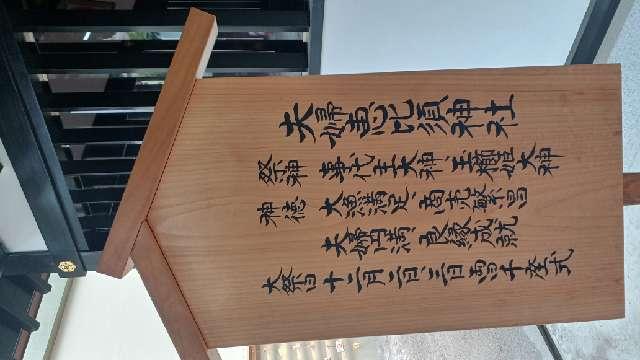 夫婦恵比須神社
祭神 事代主大神、玉櫛姫大神
神徳 大漁満足、商売繁昌
夫婦円満、良縁成就
大祭日 十二月二日三日両日千座式